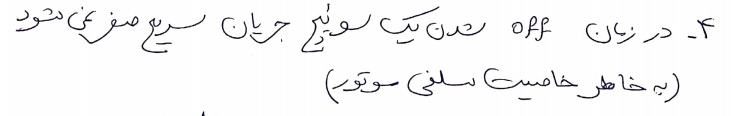 ۴- در زمان off شدن یک سوئیچ جریان سریع صفر نمی شود
(به خاطر خاصیت سلفی موتور)